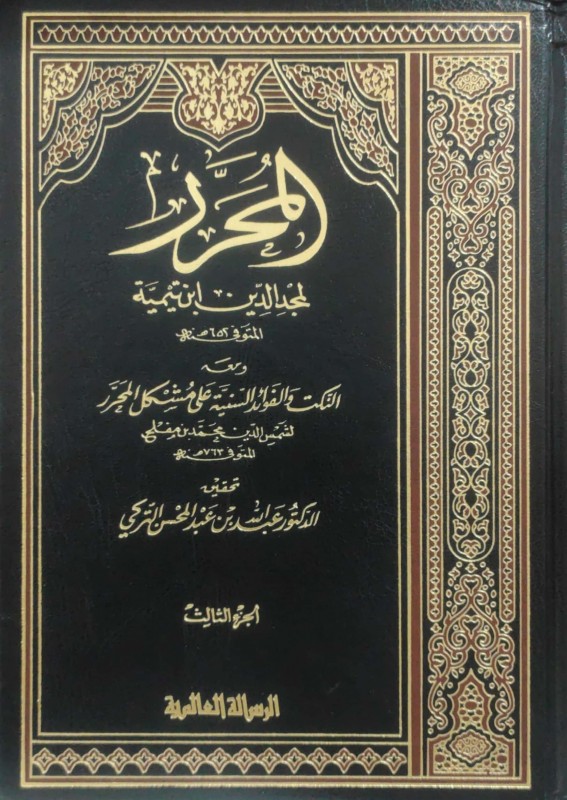 المُحَرَّر
لمجد الدين ابن تيمية
المتوفى ٦٥٢ هـ
ومعه
النكت والفوائد السنية على مُشكل المحرر
لشمس الدين محمد بن مفلح
المتوفى ٧٦٣ هـ
تحقيق
الدكتور عبد الله بن عبد المحسن التركي
الجزء الثالث
الرسالة العالمية